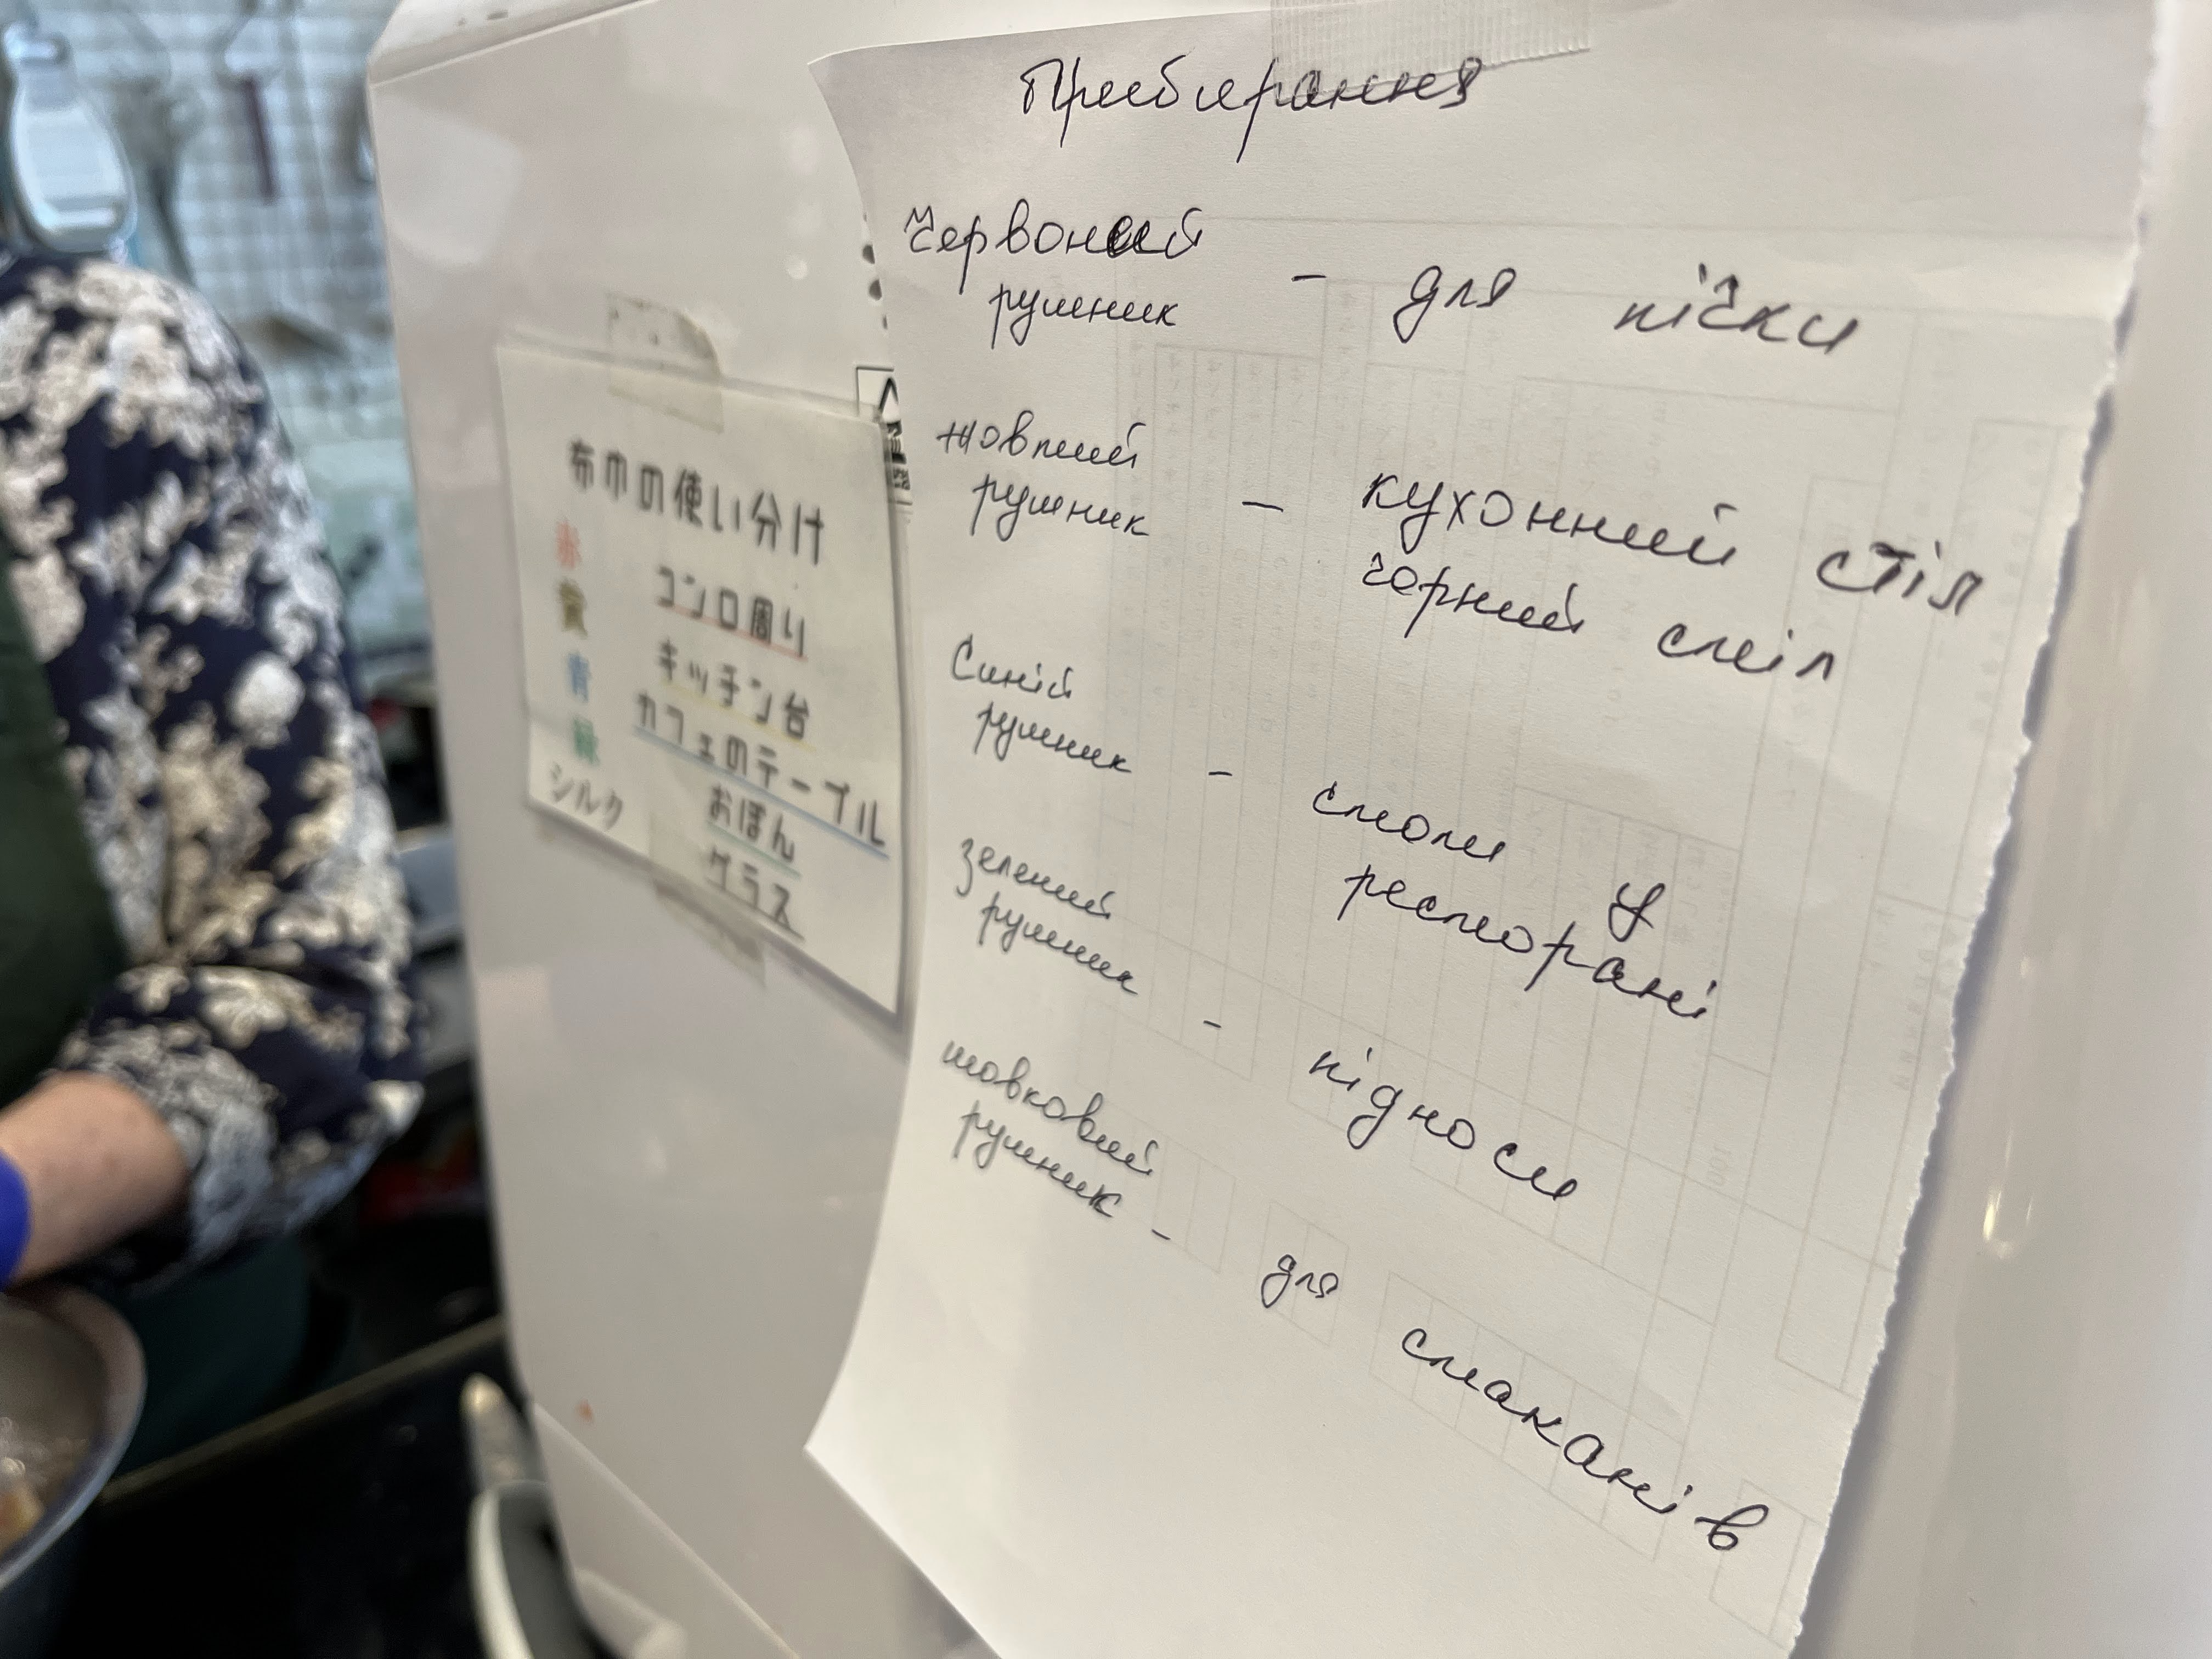 布巾の使い分け
赤 コンロ周り
黄 キッチン台
青 カフェのテーブル
緑 おぼん
シルク グラス
Прибирання
Червоний
рушник - для пічки
жовтий
рушник - кухонний стіл
чорний стіл
Синій
рушник - столи у
ресторані
зелений
рушник - підноси
шовковий
рушник - для стаканів